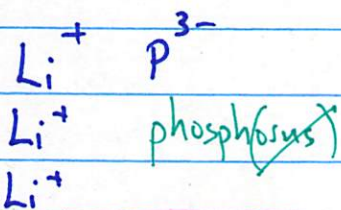 Li⁺ P³⁻
Li⁺ phosph(orus)
Li⁺